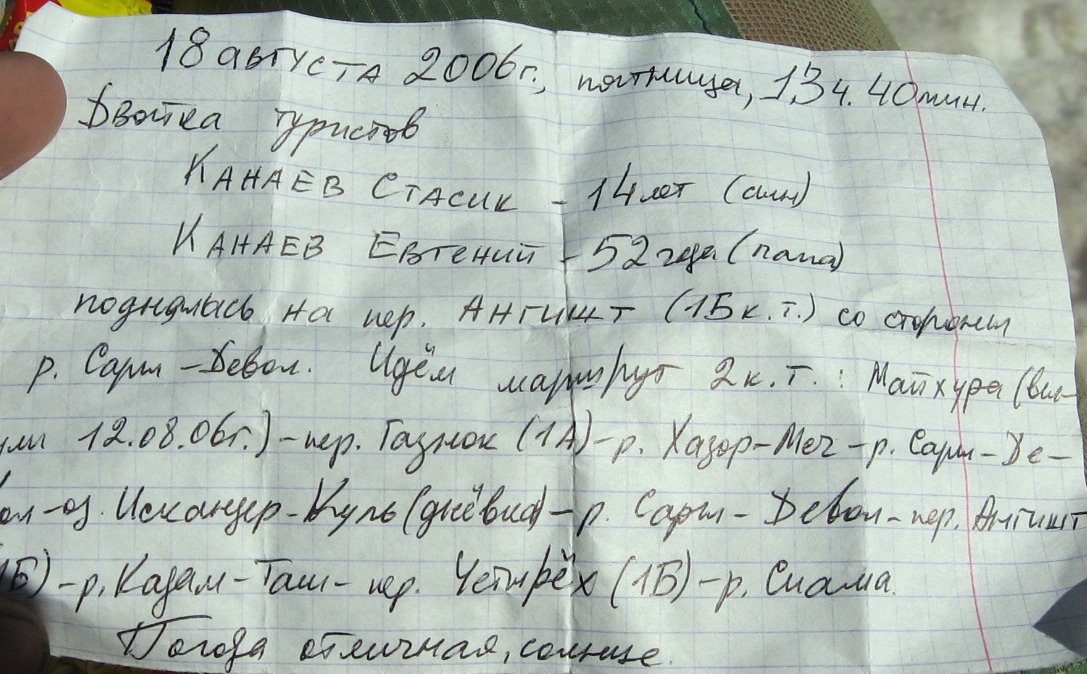 18 августа 2006г., пятница, 13ч. 40мин.
Двойка туристов
КАНАЕВ СТАСИК - 14 лет (сын)
КАНАЕВ ЕВГЕНИЙ - 52 года (папа)
поднялась на пер. АНГИШТ (1Б к.т.) со стороны
р. Сары-Девол. Идём маршрут 2 к.т.: Майхура (вы-
12.08.06г.) - пер. Газнок (1А) - р. Хазор-Меч - р. Сары-Де-
вол - оз. Искандер-Куль (днёвка) - р. Сары-Девол - пер. Ангишт
(1Б) - р. Казам-Таш - пер. Четырёх (1Б) - р. Сиама.
Погода отличная, солнце.